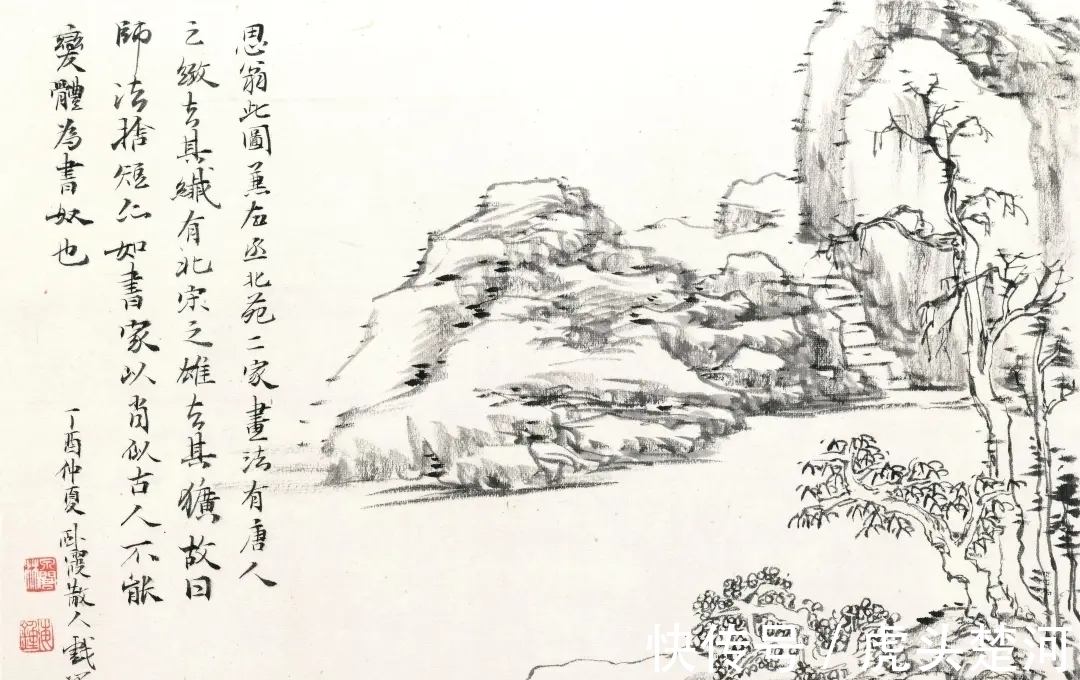 思翁此圖兼右丞北苑二家畫法有唐人
之緻去其纖有北宋之雄去其獷故曰
師法捨短亦如書家以肖似古人不能
變體為書奴也
丁酉仲夏臥霞散人戲
快传号 / 虎头楚河